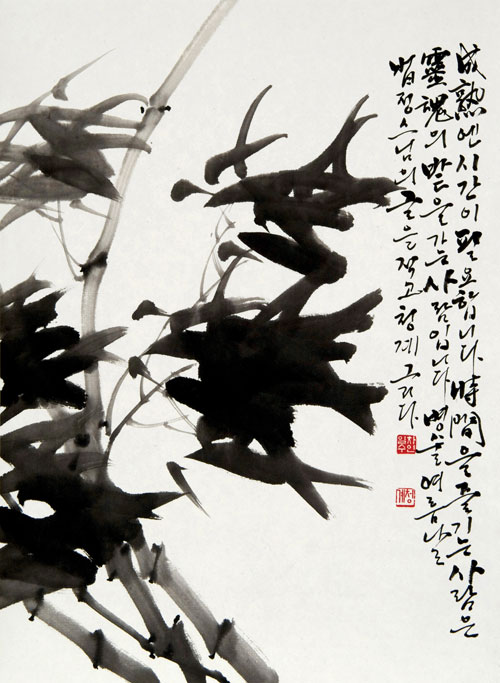 成熟엔 시간이 필요합니다. 時間을 즐기는 사람은
靈魂의 밭을 가는 사람입니다. 병술 여름날
법정스님의 글을 적고 청계 그리다.